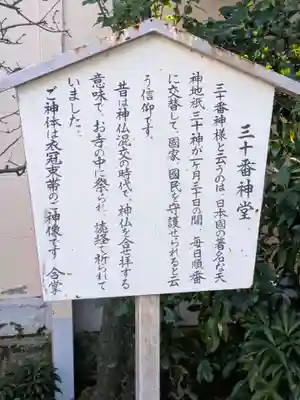 三十番神堂
三十番神様と云うのは、日本國の著名な天
神地祇三十神が一ヶ月三十日の間、毎日順番
に交替して、國家、國民を守護せられると云
う信仰です。
昔は神仏混交の時代で、神仏を合拝する
意味で、お寺の中に祭られ、読経で祈られて
いました。
ご神体は衣冠束帯のご神像です 合掌